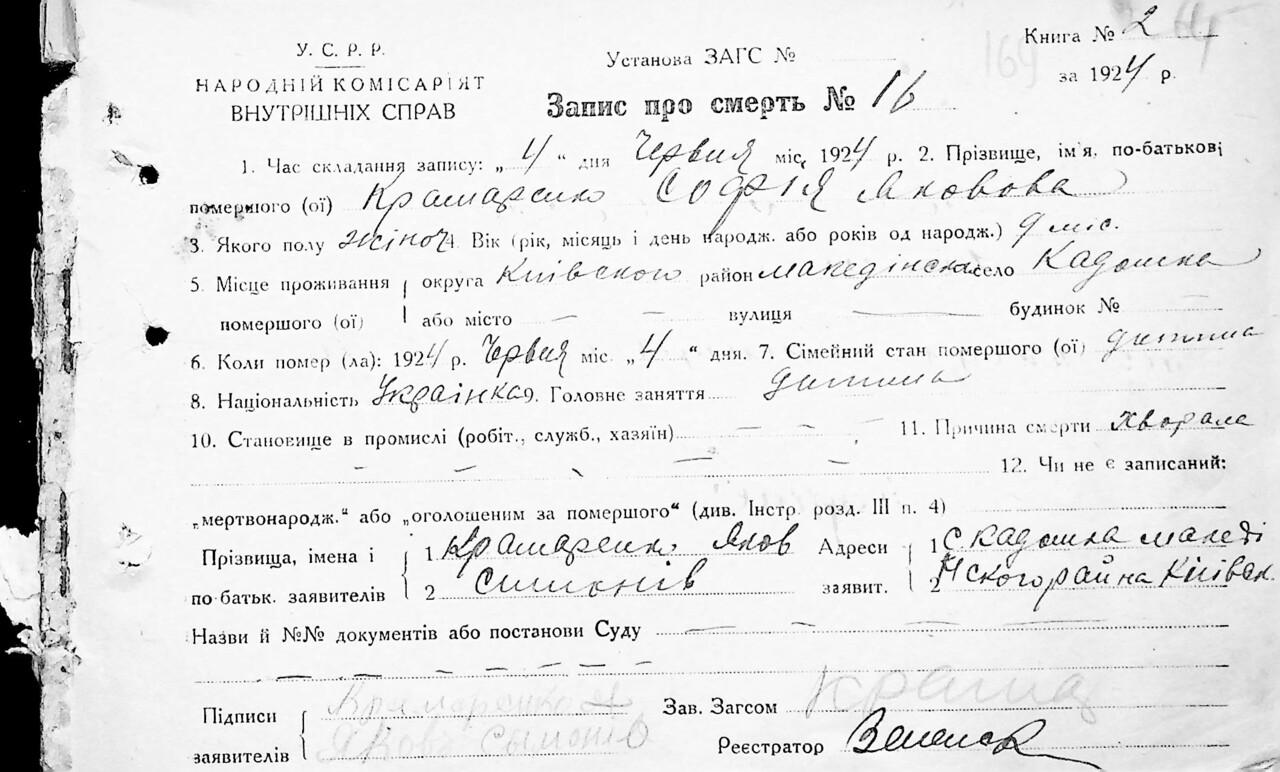 У. С. Р. Р.
НАРОДНІЙ КОМІСАРІЯТ
ВНУТРІШНІХ СПРАВ
Установа ЗАГС №
Книга № 2
за 1924 р.
Запис про смерть № 16
1. Час складання запису: „4" дня Червня міс, 1924 р. 2. Прізвище, ім'я, по-батькові
помершого (ої) Крамаренко Софія Яковова
3. Якого полу жіноч 4. Вік (рік, місяць і день народж. або років од народж.) 9 міс.
5. Місце проживання округа Київского район Македінск село Кадомка
помершого (ої) або місто — — вулиця — будинок № —
6. Коли помер (ла): 1924 р. Червня міс. „4" дня. 7. Сімейний стан помершого (ої) дитина
8. Національність Українка 9. Головне заняття дитина
10. Становище в промислі (робіт., служб., хазяїн) — — — 11. Причина смерти хворала
— — — — — 12. Чи не є записаний:
„мертвонародж." або „оголошеним за помершого" (див. Інстр. розд. III п. 4)
Прізвища, імена і 1. Крамаренко Яков Адреси 1 С. Кадомка Македі
по батьк. заявителів 2 Симонів заявит. 2 нского райна Київск.
Назви й №№ документів або постанови Суду — — — — —
— — — — —
Підписи Крамаренко Зав. Загсом
заявителів Яков Сымонів Реєстратор